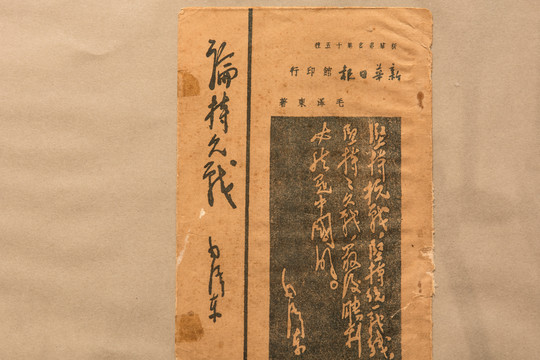 叢書第十五種
新華日報館印行
毛澤東著
堅持抗戰，堅持統一戰線，
堅持持久戰，最後勝利
必然是中國的。
毛澤東
論持久戰
毛澤東